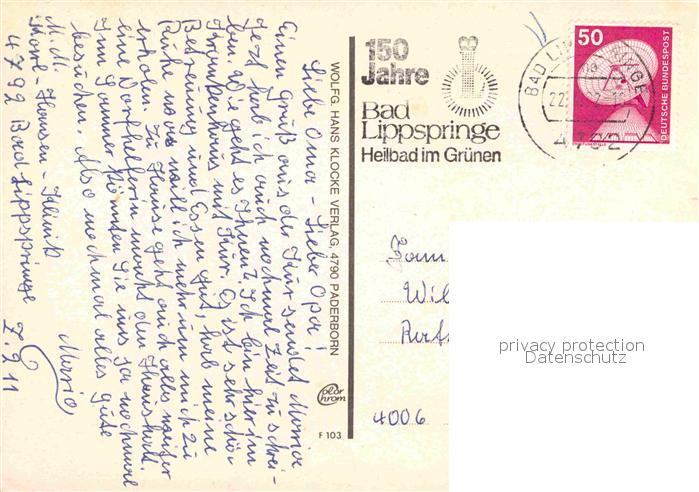 Liebe Oma - Lieber Opa!
Einen Gruß aus der Kur sendet Maria
Jetzt hab ich auch nochmal Zeit zu schrei-
ben. Wie geht es Ihnen? Ich bin hier im
Krankenhaus mit Kur. Es ist sehr schön
Betreuung und Essen gut, hab meine
Ruhe was will ich mehr um mich zu
erholen. Zu Hause geht auch alles weiter
eine Dorfhelferin macht den Haushalt.
Im Sommer könnten Sie uns ja nochmal
besuchen. Also nochmal alles Gute
Maria
M. M.
Karl-Hansen-Klinik
4792 Bad Lippspringe Z. 211
WOLFG. HANS KLOCKE VERLAG, 4790 PADERBORN
color chrom
F 103
150
Jahre
Bad
Lippspringe
Heilbad im Grünen
BAD LIPPSPRINGE
22.
4792
50
DEUTSCHE BUNDESPOST
Fam
Wil
Rats
4006
privacy protection
Datenschutz